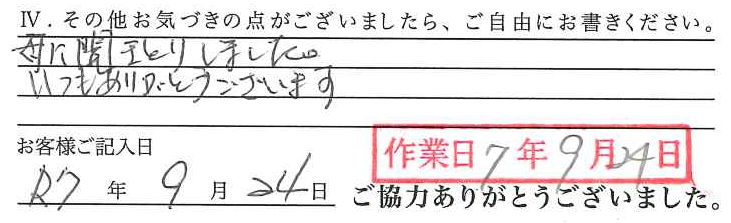 Ⅳ．その他お気づきの点がございましたら、ご自由にお書きください。
母に聞きとりしました。
いつもありがとうございます
お客様ご記入日
作業日7年9月24日
R7年9月24日
ご協力ありがとうございました。